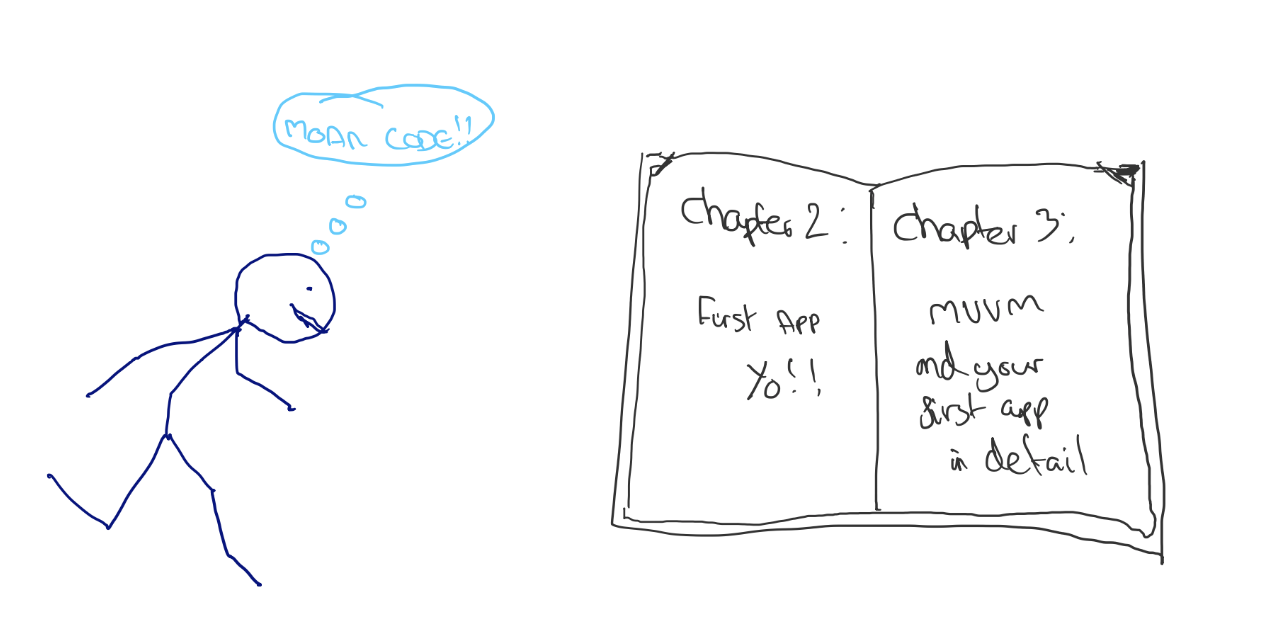 MOAR CODE!!
Chapter 2:
First App
Yo!!
Chapter 3:
MVVM
and your
first app
in detail